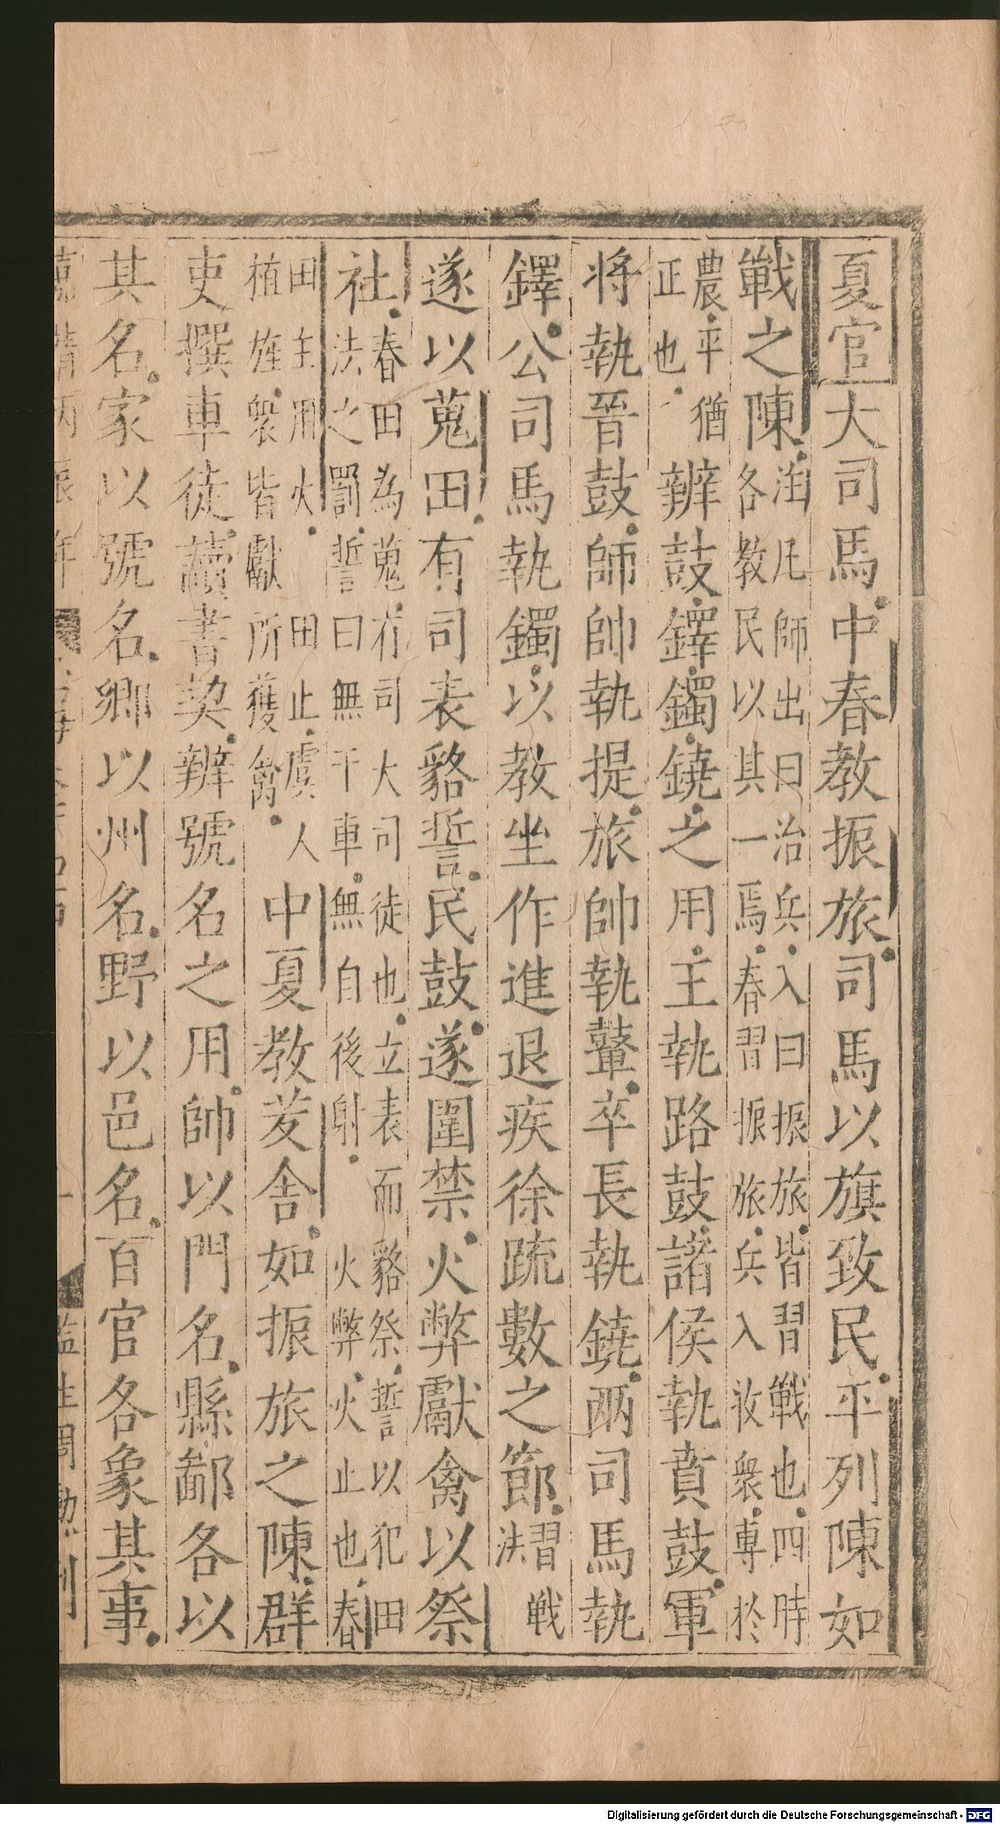 夏官大司馬中春教振旅司馬以旗致民平列陳如
戰之陳注凡師出曰治兵入曰振旅皆習戰也四時各教民以其一焉春習振旅兵入收衆專於
農平猶正也辨鼓鐸鐲鐃之用王執路鼓諸侯執賁鼓軍
将執晉鼓師帥執提旅帥執鼙卒長執鐃兩司馬執
鐸公司馬執鐲以教坐作進退疾徐疏數之節習戰法
遂以蒐田有司表貉誓民鼓遂圍禁火弊獻禽以祭
社春田為蒐有司大司徒也立表而貉祭誓以犯田法之罰誓曰無干車無自後射火弊火止也春
田主用火田止虞人植旌衆皆獻所獲禽中夏教茇舍如振旅之陳群
吏撰車徒讀書契辨號名之用帥以門名縣鄙各以
其名家以號名鄉以州名野以邑名百官各象其事
Digitalisierung gefördert durch die Deutsche Forschungsgemeinschaft - DFG